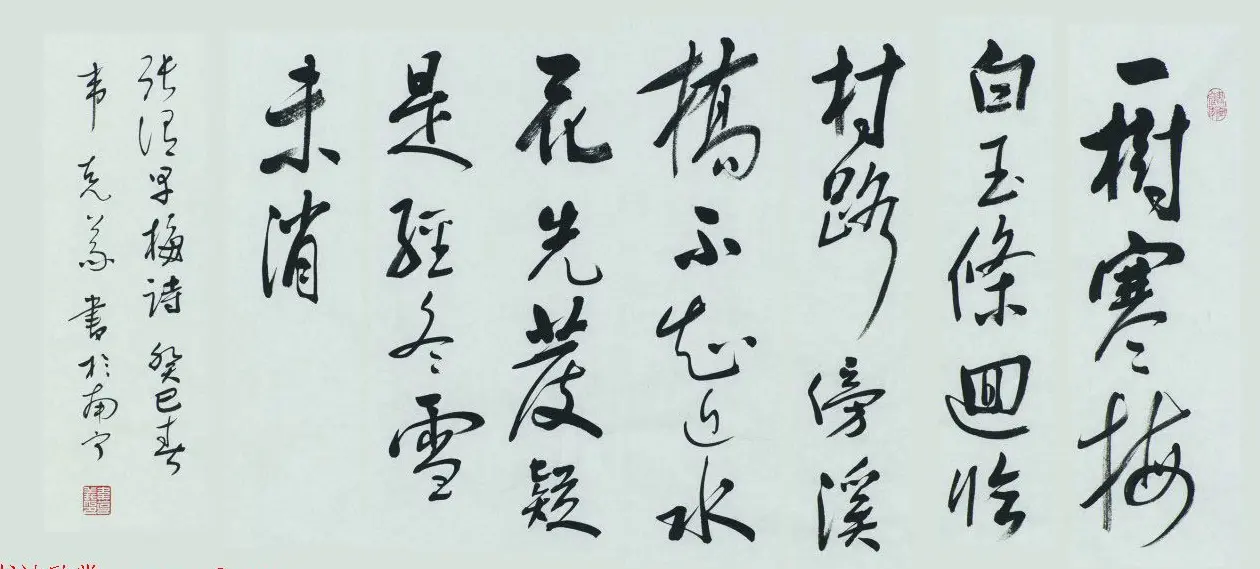 一樹寒梅
白玉條迴臨
村路傍溪
橋不知近水
花先發疑
是經冬雪
未消
张谓早梅詩 癸巳春
韦克義書於南宁